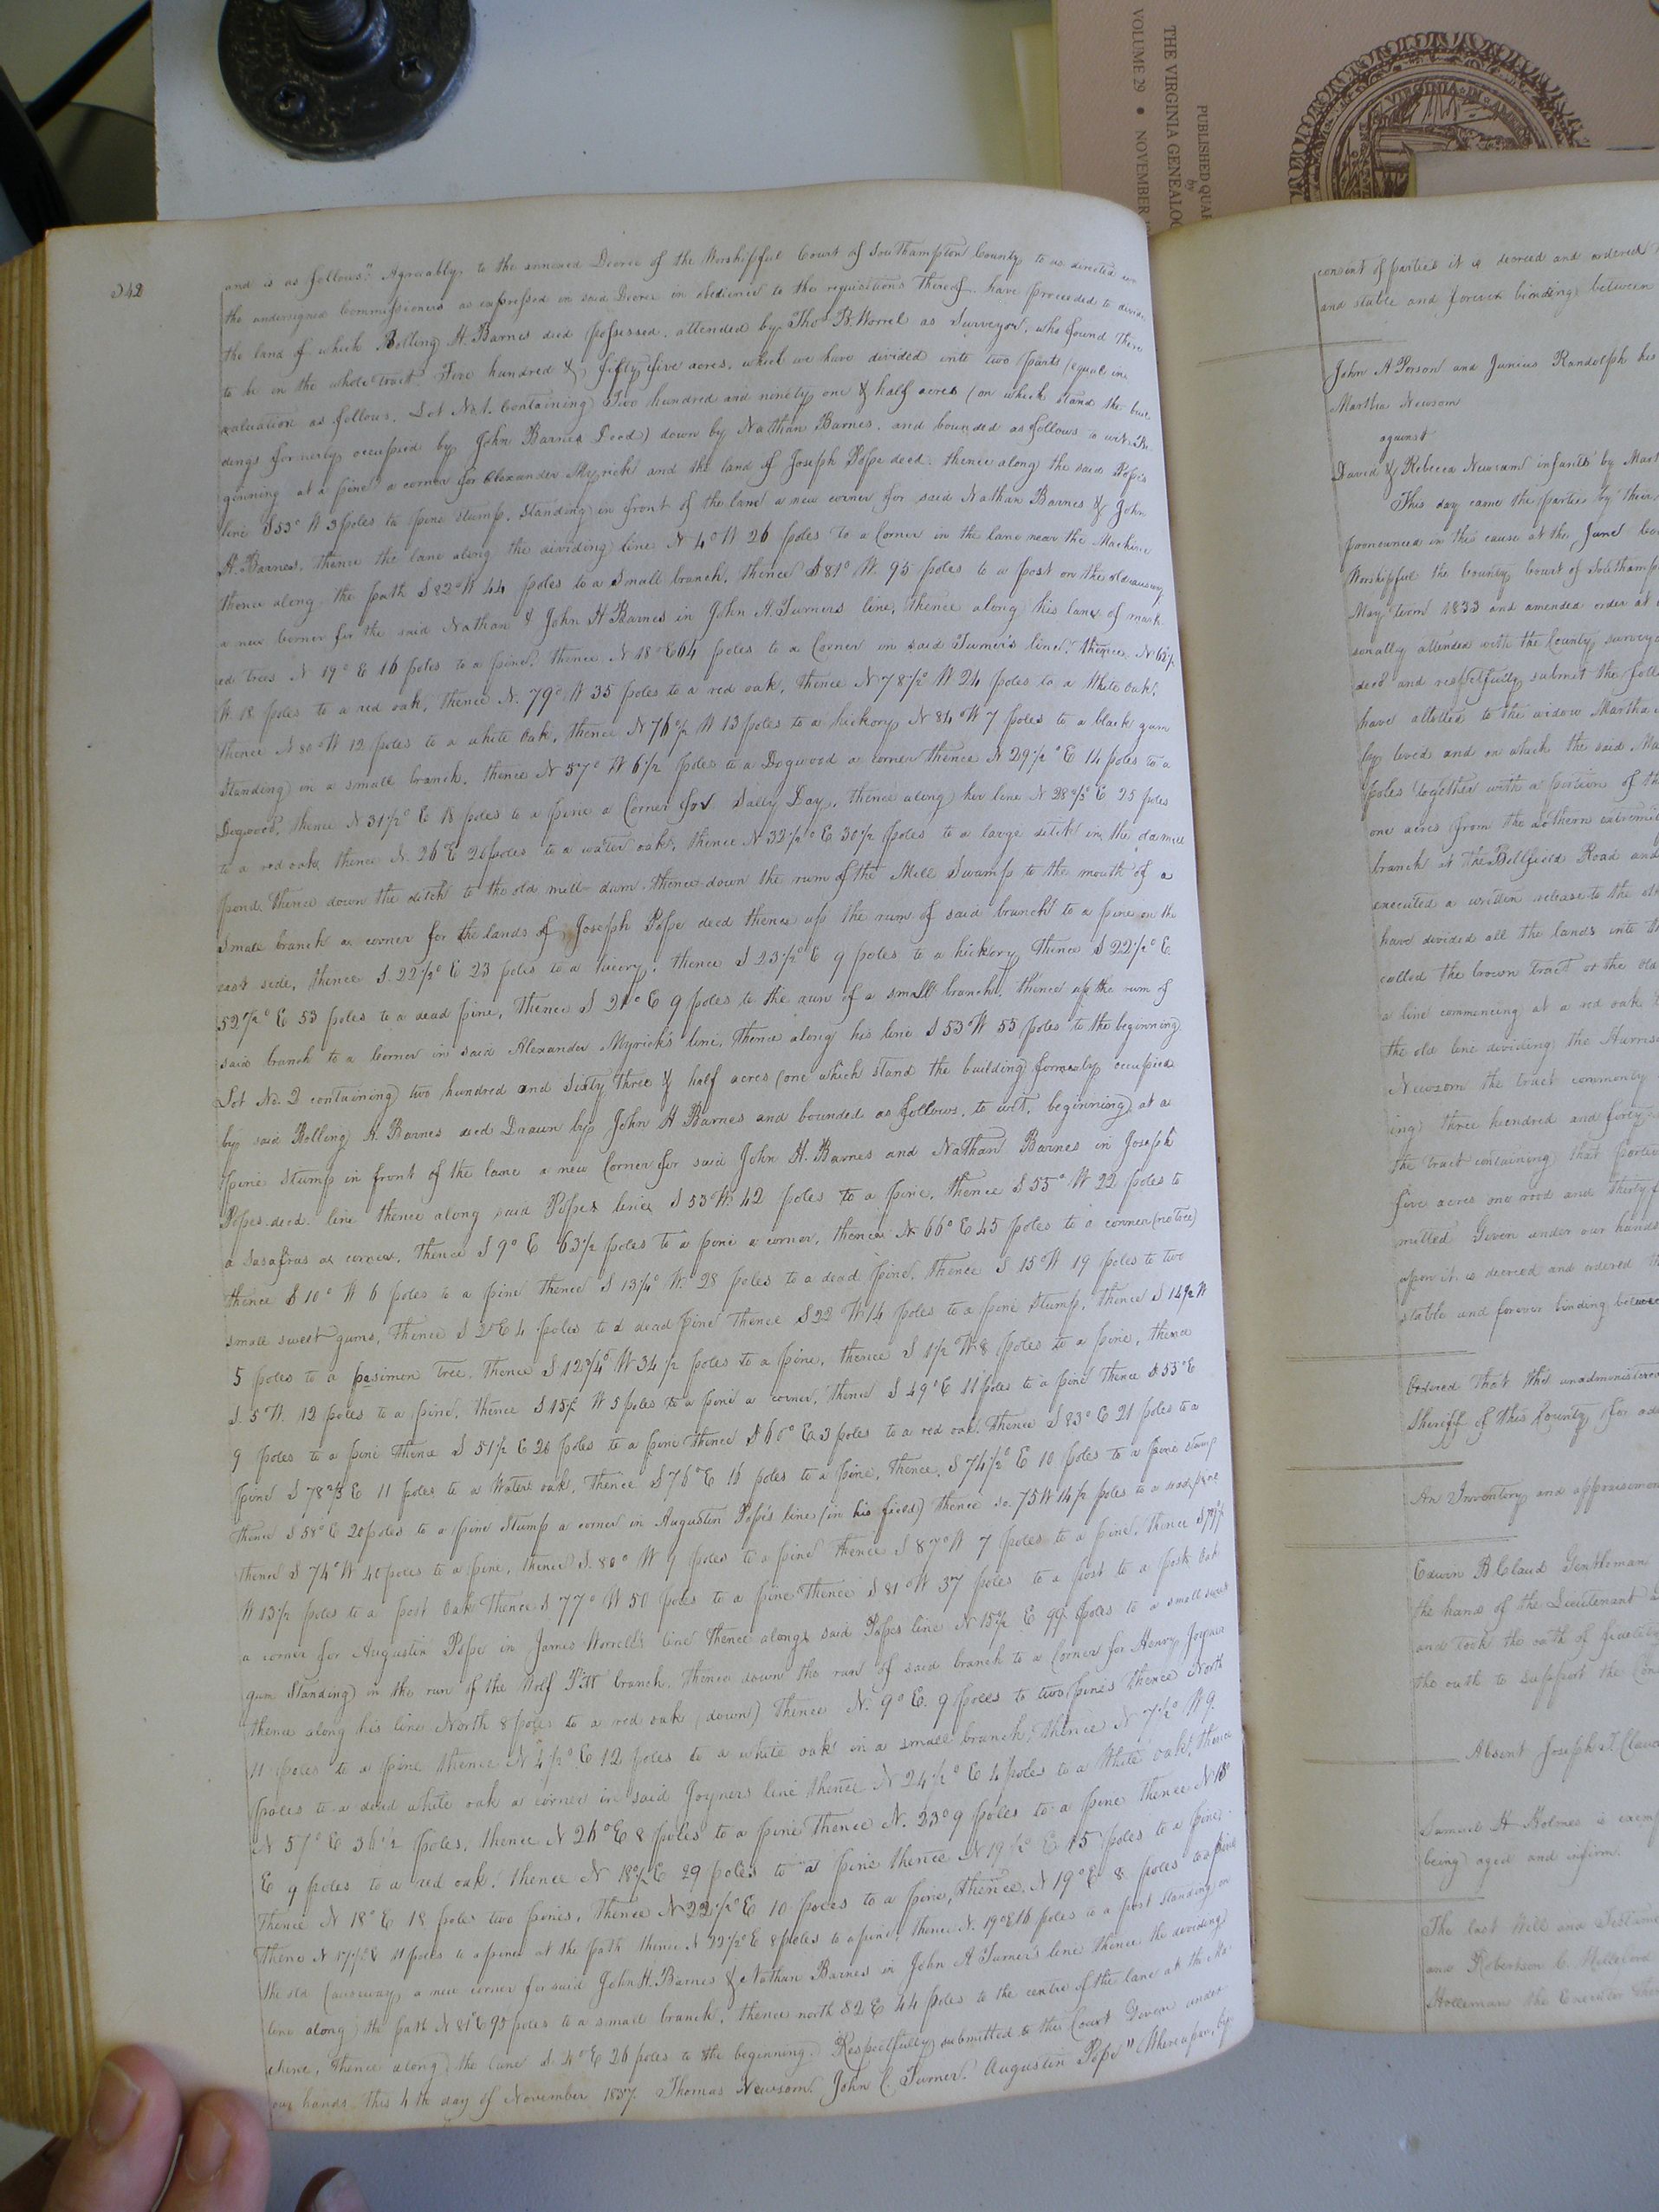 THE VIRGINIA GENEALOG
VOLUME 29 • NOVEMBER
PUBLISHED QUAR
by
VIRGINIA · IN · AM
342
and is as follows." Agreeably to the annexed Decree of the Worshipful Court of Southampton County to us directed
the undersigned Commissioners as expressed in said Decree in obedience to the requisitions thereof. have proceeded to divide
the land of which Bolling H. Barnes died possessed. attended by Thos B. Worrel as Surveyor, who found there
to be in the whole tract. Five hundred & fifty five acres, which we have divided into two parts equal in
valuation as follows. Lot No 1. Containing Two hundred and ninety one & half acres (on which stand the buil
dings formerly occupied by John Barnes Deed) down by Nathan Barnes. and bounded as follows to wit. Be
ginning at a pine a corner for Alexander Myrick and the land of Joseph Pope deed. thence along the said Pope's
line S 53° W 3 poles to pine stump, Standing in front of the lane a new corner for said Nathan Barnes & John
H. Barnes, thence the lane along the dividing line N 4° W 26 poles to a Corner in the lane near the Machine
thence along the path S 82° W 44 poles to a Small branch, thence S 81° W. 95 poles to a post on the old causway
a new Corner for the said Nathan & John H Barnes in John A. Turners line, thence along his line of mark
ed trees N 19° E 16 poles to a pine, thence N 18° E 64 poles to a Corner in said Turner's line, thence N 62½
W 18 poles to a red oak, thence N. 79° W 35 poles to a red oak, thence N 78½° W 24 poles to a White Oak,
thence N 80° W 12 poles to a white Oak, thence N 76½ W 13 poles to a hickory N 84° W 7 poles to a black gum
Standing in a small branch, thence N 57° W 6½ poles to a Dogwood a corner thence N 29½° E 14 poles to a
Dogwood, thence N 31½° E 18 poles to a pine a Corner for Sally Day, thence along her line N 28½° E 25 poles
to a red oak, thence N. 26 E 26 poles to a water oak, thence N 32½° E 30½ poles to a large ditch in the
pond, thence down the ditch to the old mill dam thence down the run of the Mill Swamp to the mouth of a
small branch a corner for the lands of Joseph Pope deed thence up the run of said branch to a pine on the
east side, thence S. 22½° E 23 poles to a hicory, thence S 23½° E 9 poles to a hickory thence S 22½° E
52½° E 53 poles to a dead pine, thence S 21° E 9 poles to the run of a small branch, thence up the run of
said branch to a Corner in said Alexander Myrick's line, thence along his line S 53 W 55 poles to the beginning
Lot No. 2 containing two hundred and Sixty three & half acres (one which stand the building formerly occupied
by said Bolling H. Barnes deed Drawn by John H Barnes and bounded as follows, to wit, beginning at a
pine Stump in front of the lane a new Corner for said John H. Barnes and Nathan Barnes in Joseph
Popes deed. line thence along said Popes line S 53 W. 42 poles to a pine, thence S 55° W 22 poles to
a Sasafras a corner, thence S 9° E 63½ poles to a pine a corner, thence N 66° E 45 poles to a corner (no tree)
thence S 10° W 6 poles to a pine thence S 13¼° W. 28 poles to a dead pine, thence S 15° W 19 poles to two
small sweet gums, thence S 2° E 4 poles to a dead pine thence S 22 W 14 poles to a pine Stump, thence S 14½ W
5 poles to a pasimon tree, thence S 12¾° W 34½ poles to a pine, thence S 1½ W 8 poles to a pine, thence
S. 5 W. 12 poles to a pine, thence S 15½ W 5 poles to a pine a corner, thence S 49° E 11 poles to a pine thence S 55° E
9 poles to a pine thence S 51½ E 26 poles to a pine thence S 66° E 23 poles to a red oak, thence S 83° E 21 poles to a
pine S 78½ E 11 poles to a Water oak, thence S 76° E 16 poles to a pine, thence, S 74½° E 10 poles to a pine stump
thence S 58° E 20 poles to a pine Stump a corner in Augustin Pope's line (in his field) thence So. 75 W 14½ poles to a dead pine
thence S 74° W 40 poles to a pine, thence S. 80° W 9 poles to a pine thence S 87° W 7 poles to a pine, thence S 79½
W 13½ poles to a post Oak thence S 77° W 50 poles to a pine thence S 81° W 37 poles to a post to a post Oak
a corner for Augustin Pope in James Worrell's line thence along said Popes line N 15½ E 99 poles to a small sweet
gum Standing in the run of the Wolf Pitt branch, thence down the run of said branch to a Corner for Henry Joyner
thence along his line North 8 poles to a red oak (down) thence N. 9° E. 9 poles to two pines thence North
11 poles to a pine thence N 4½° E 12 poles to a white oak in a small branch, thence N 7½° W 9.
poles to a dead white oak a corner in said Joyners line thence N 24½° E 4 poles to a White oak, thence
N 57° E 36½ poles, thence N 26° E 8 poles to a pine thence N. 23° 9 poles to a pine thence N 18°
E 9 poles to a red oak, thence N 18½ E 29 poles to a pine thence N 19½° E 15 poles to a pine
thence N 18° E 18 poles two pines, thence N 22½° E 10 poles to a pine, thence N 19° E 8 poles to a pine
thence N 17½ E 11 poles to a pine at the path thence N 22½° E 8 poles to a pine, thence N. 19° E 16 poles to a post standing on
the old Causeway a new corner for said John H. Barnes & Nathan Barnes in John A Turner's line thence the dividing
line along the path N 81° E 95 poles to a small branch, thence north 82 E 44 poles to the centre of the lane at the Ma
chine, thence along the lane S. 4° E 26 poles to the beginning. Respectfully submitted to the Court Given under
our hands this 4th day of November 1837. Thomas Newsom. John C. Turner. Augustin Pope" Whereupon, by
consent of parties it is decreed and ordered
and stable and forever binding between
John A Person and Junius Randolph his
Martha Newsom
against
David & Rebecca Newsom infants by Mart
This day came the parties by their
pronounced in this cause at the June
Worshipful the County Court of Southamp
May term 1833 and amended order at
sonally attended with the County survey
deed and respectfully submit the foll
have allotted to the widow Martha
by loved and on which the said Ma
poles together with a portion of th
one acres from the Southern extremit
branch at the Bellfield Road and
executed a written release to the
have divided all the lands into th
called the brown Tract at the old
a line commencing at a red oak
the old line dividing the Harris
Newsom the tract commonly
ing three hundred and forty
the tract containing that portio
five acres one rood and thirty
mitted Given under our hands
upon it is decreed and ordered th
stable and forever binding between
Ordered That the unadministered
Sheriff of this County for ad
An Inventory and appraisement
Edwin B Claud Gentleman
the hand of the Lieutenant
and took the oath of fidelity
the oath to support the Con
Absent Joseph T. Claud
Samuel H Holmes is exemp
being aged and infirm.
The last Will and Testame
and Robertson C.
Holleman the Executor ther